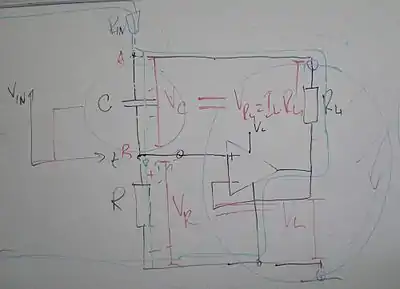 RIN
A
VIN
C
VC = VRL = IL RL
RL
VL
t
B
+
R
VR
VL